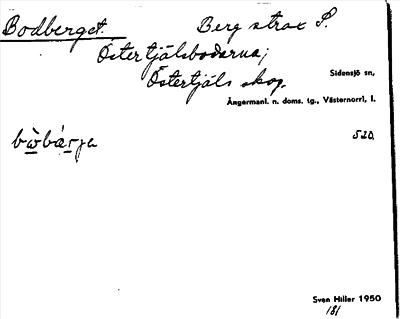 Bodberget. Berg strax S.
Östertjälsbodarna;
Östertjäls skog.
Sidensjö sn,
Ångermanl. n. doms. tg., Västernorrl. l.
bẁbárja 520.
Sven Hiller 1950
181